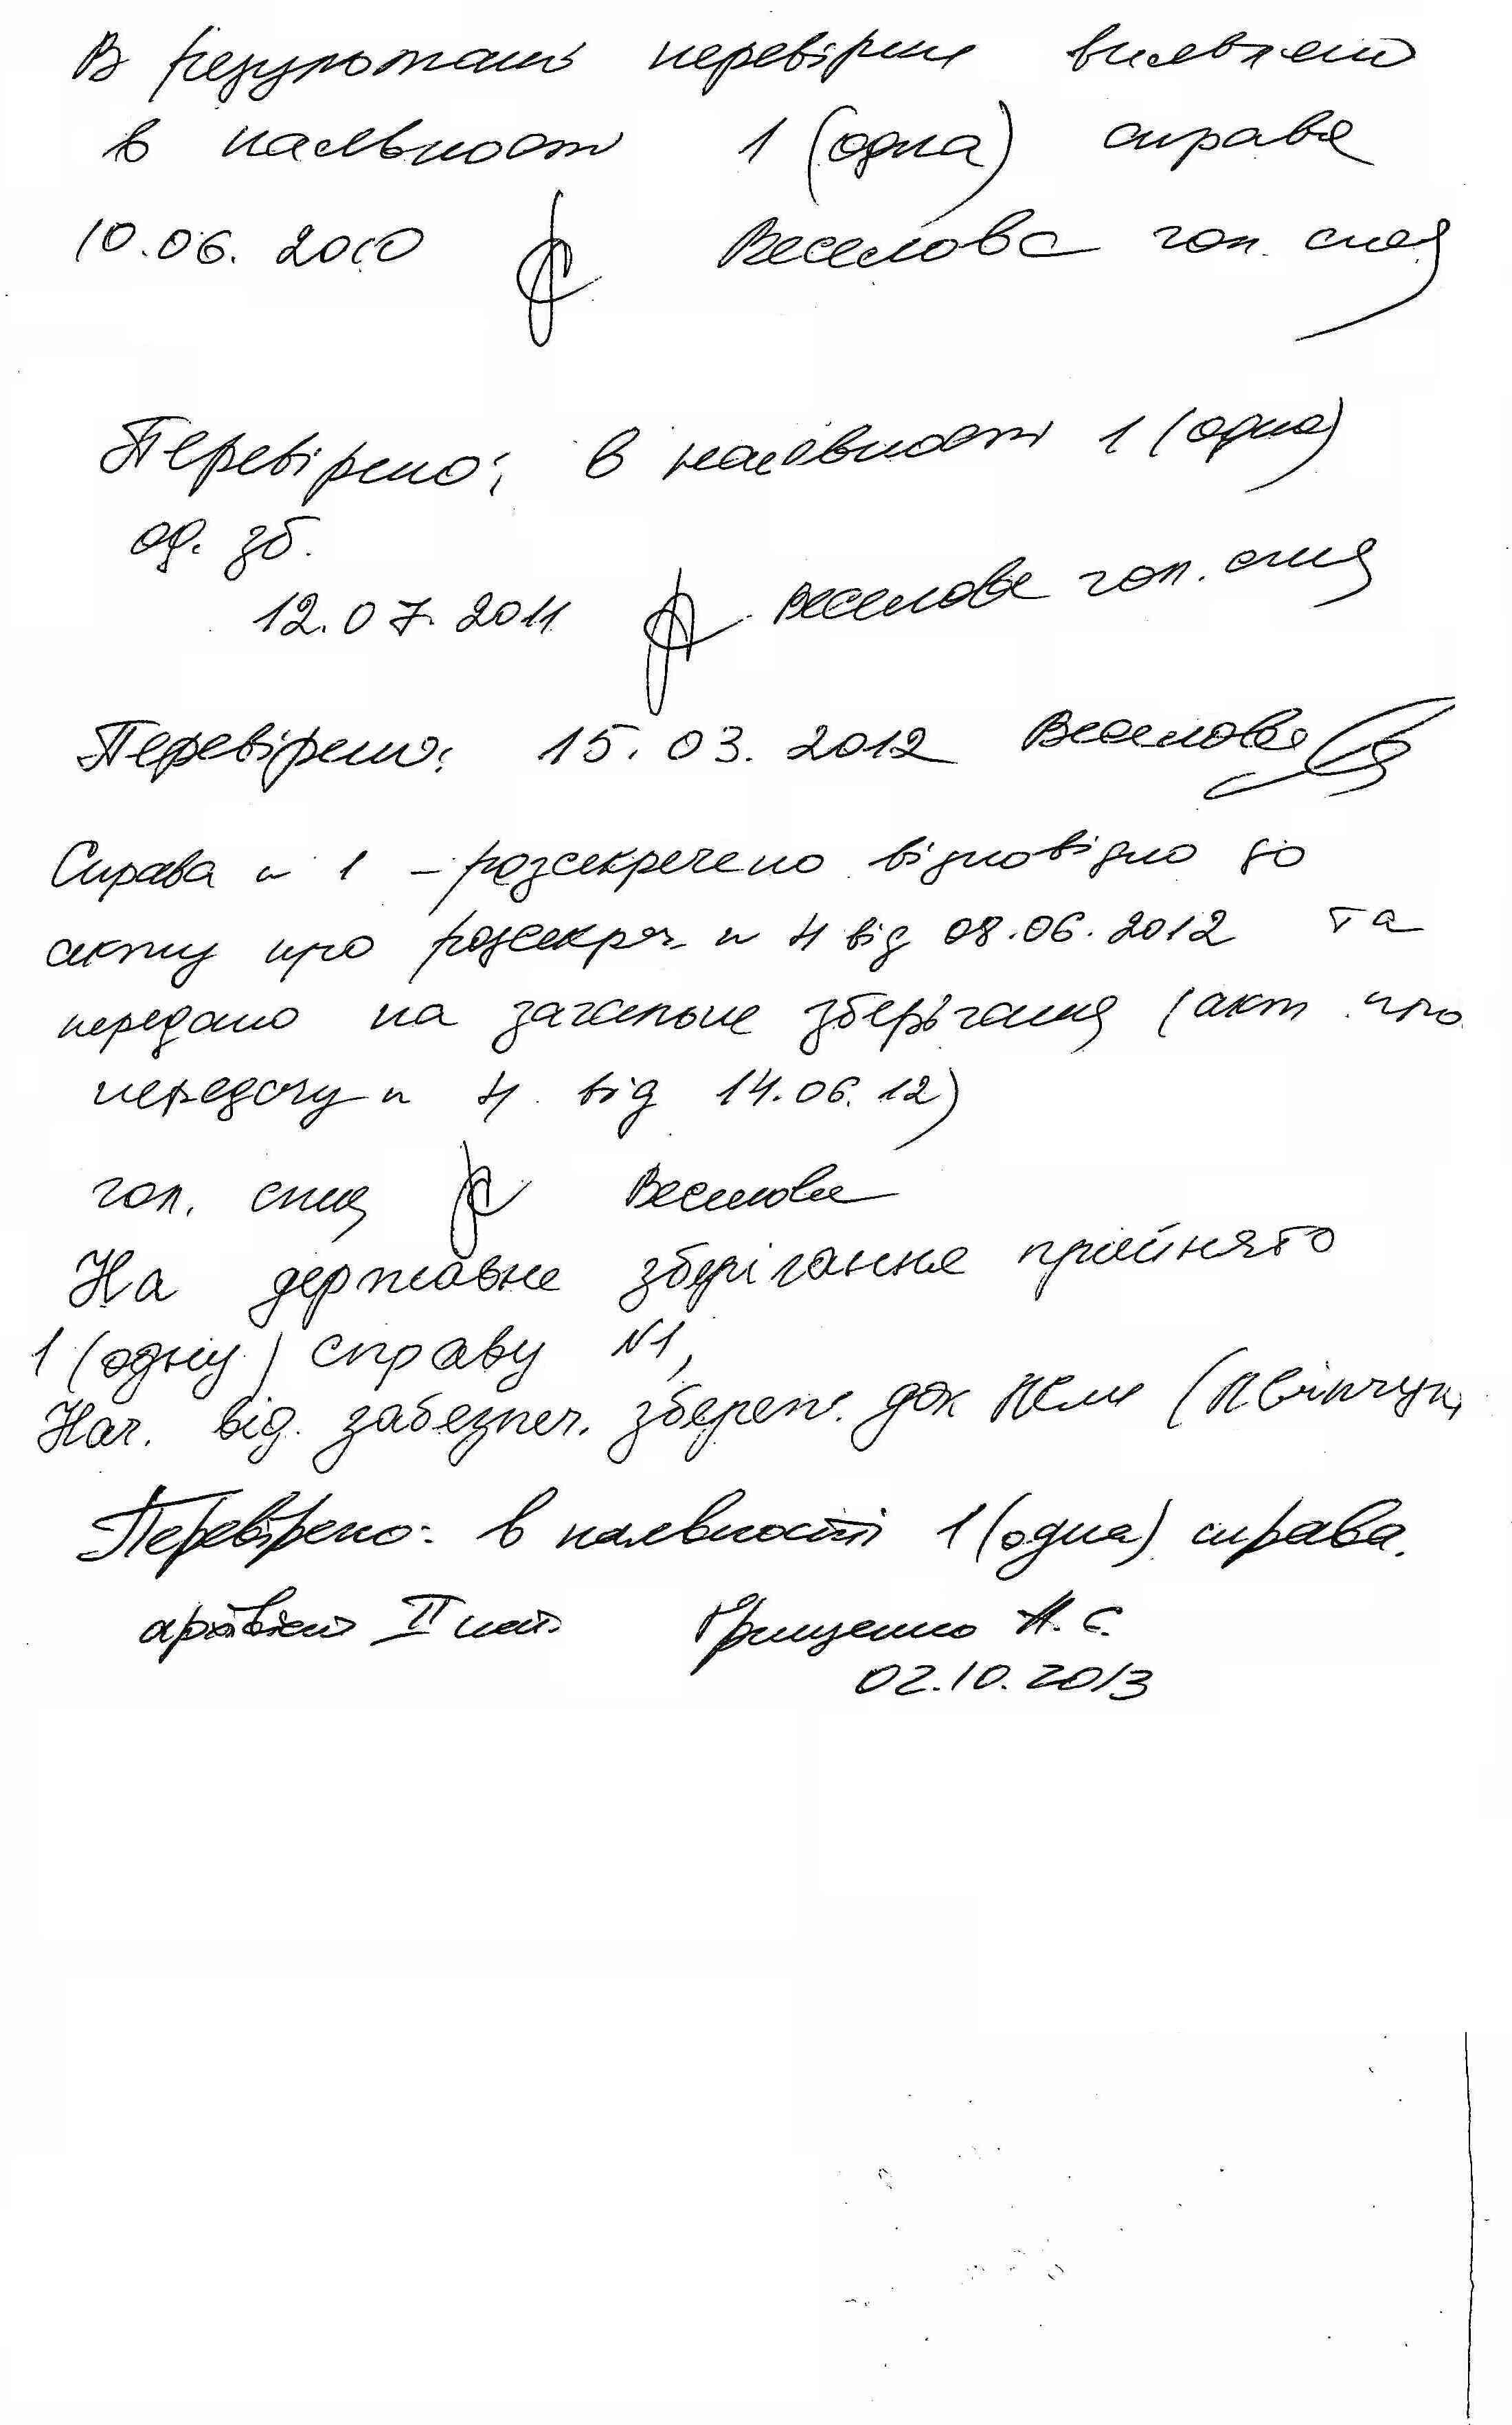 В результаті перевірки виявлено
в наявності 1 (одна) справа
10.06.2010 Веселова гол. спец
Перевірено: в наявності 1 (одна)
од. зб.
12.07.2011 Веселова гол. спец
Перевірено: 15.03.2012 Веселова
Справа № 1 – розсекречено відповідно до
акту про розсекреч. № 4 від 08.06.2012 та
передано на загальне зберігання (акт про
передачу № 4 від 14.06.12)
гол. спец Веселова
На державне зберігання прийнято
1 (одну) справу №1,
Нач. від. забезпеч. збереж. док
Перевірено: в наявності 1 (одна) справа.
архівіст II кат. Грищенко Н. Є.
02.10.2013